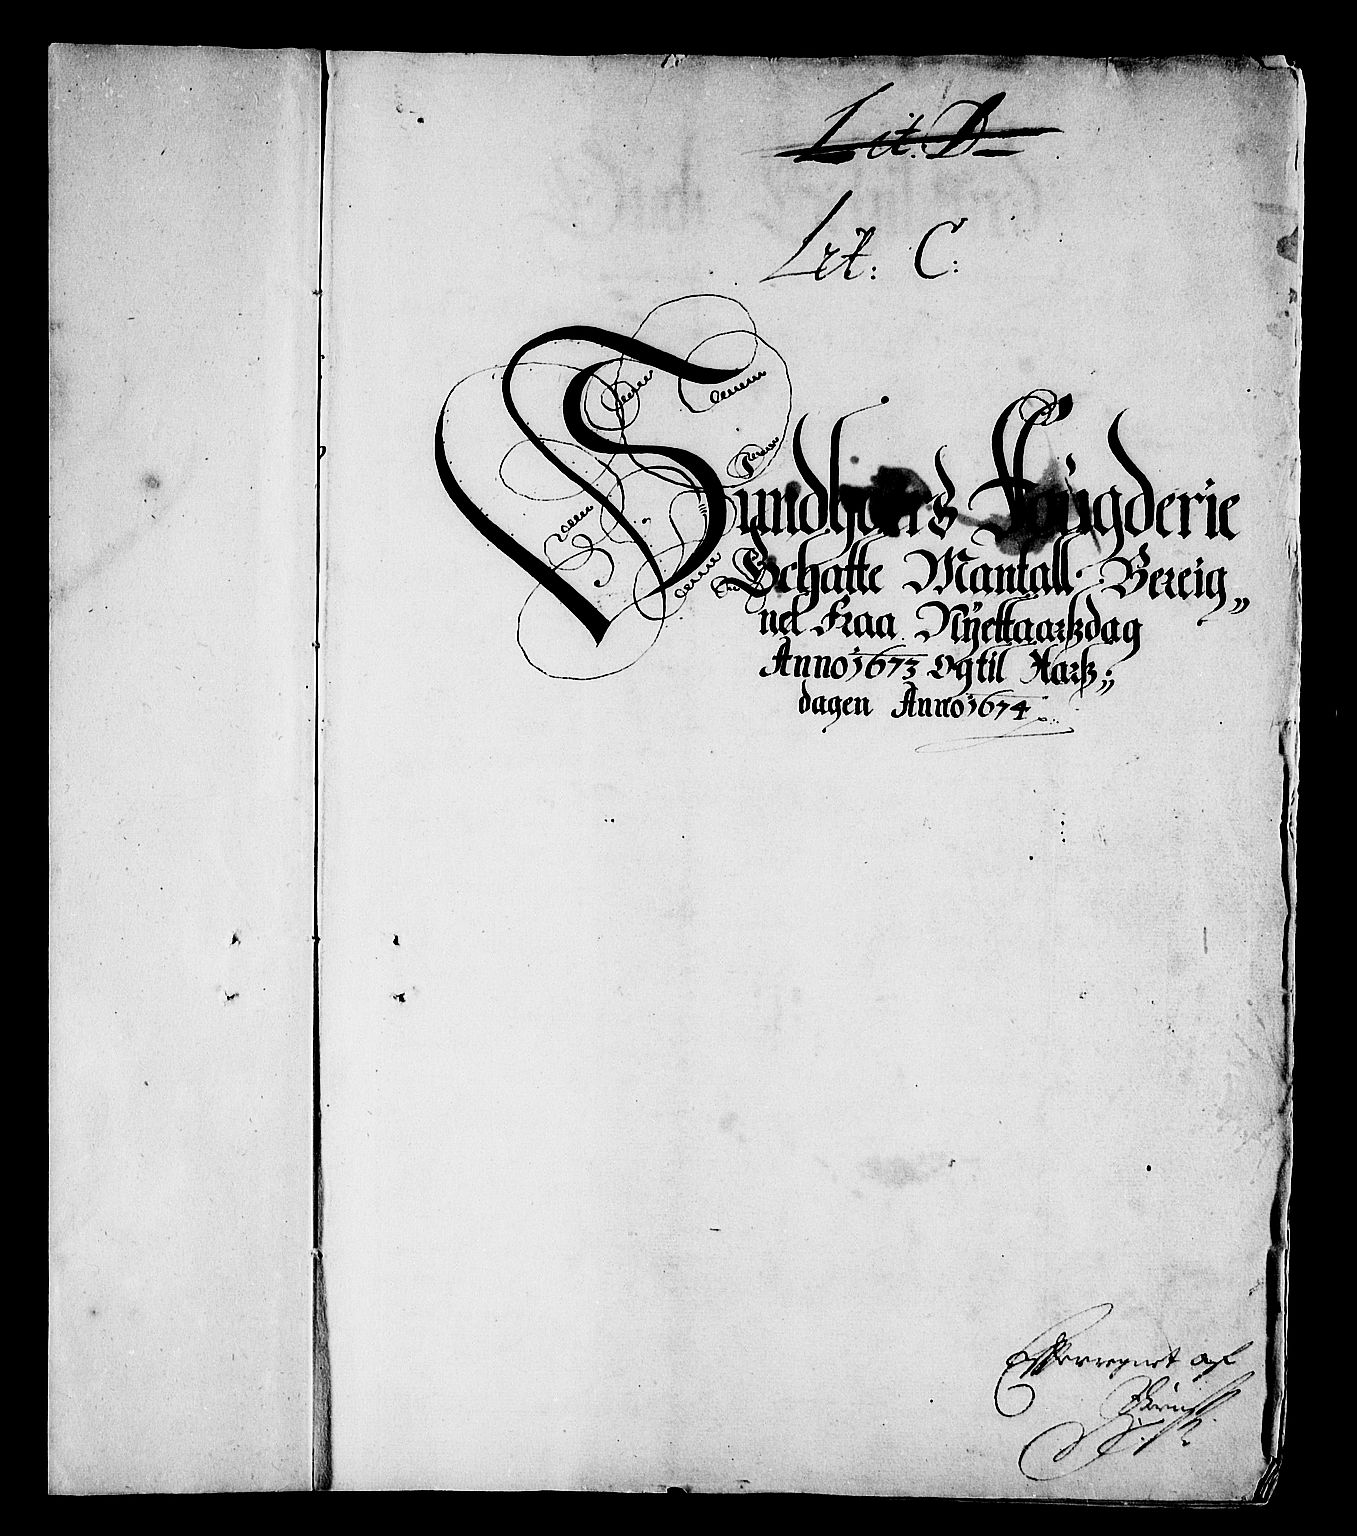 Lit. D
Lit: C:
Sundhoers Fougderie
Schatte Mantall Bereig„
net Fraa Nÿettaarßdag
Anno 1673 Og til Aarß:
dagen Anno 1674
Efterregnet af